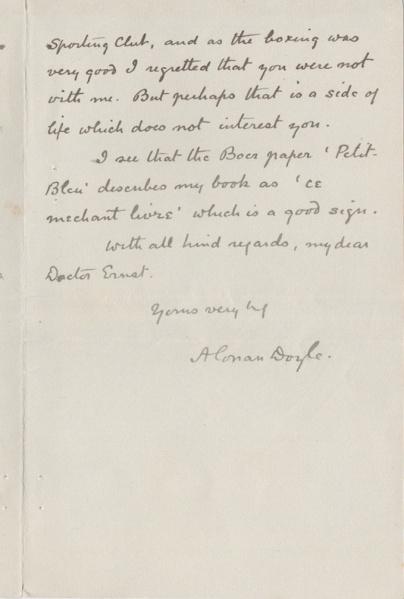 Sporting Club, and as the boxing was
very good I regretted that you were not
with me. But perhaps that is a side of
life which does not interest you.
I see that the Boer paper 'Petit-
Bleu' describes my book as 'ce
mechant livre' which is a good sign.
With all kind regards, my dear
Doctor Ernst.
Yours very try
A Conan Doyle.